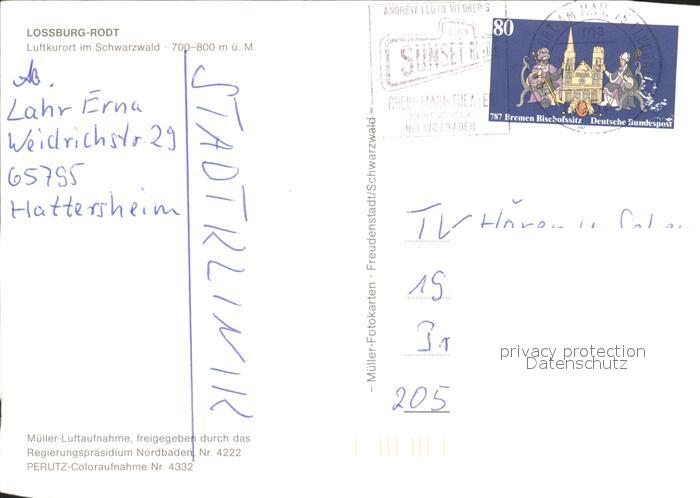 LOSSBURG-RODT
Luftkurort im Schwarzwald · 700–800 m ü. M.
Ab.
Lahr Erna
Weidrichstr. 29
65795
Hattersheim
STADTKLINIK
Müller-Luftaufnahme, freigegeben durch das
Regierungspräsidium Nordbaden, Nr. 4222
PERUTZ-Coloraufnahme Nr. 4332
– Müller-Fotokarten · Freudenstadt/Schwarzwald –
ANDREW LLOYD WEBBER'S
SUNSET
RHEIN-MAIN-THEATER
BEI WIESBADEN
80
787 Bremen Bischofssitz Deutsche Bundespost
TV Hören u.
19
205
privacy protection
Datenschutz